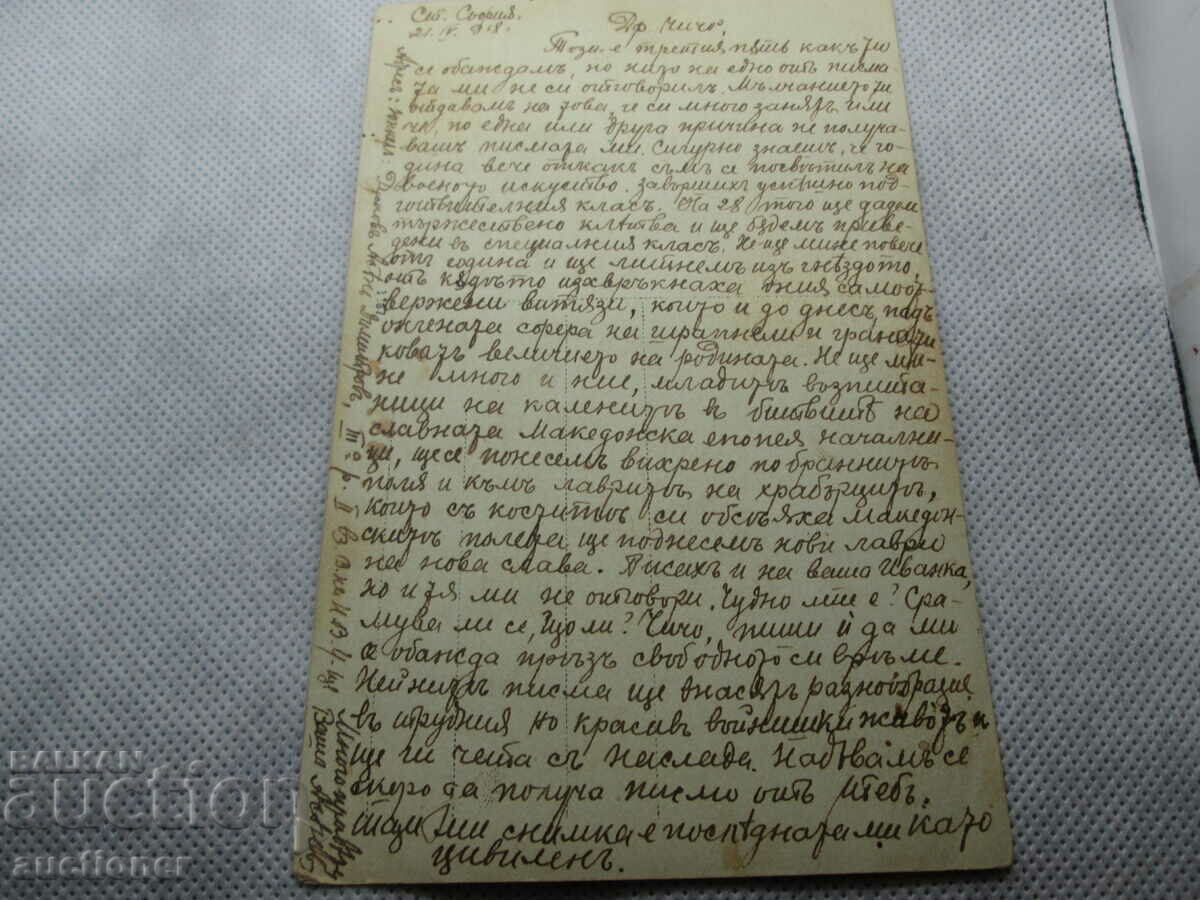 Ст. София.
21. IV. 918.
Др. Чичо,
Този е третия пѫть какъ ти
се обаждамъ, но нито на едно отъ писма-
та ми не си отговорилъ. Мълчанието ти
отдавамъ на това, че си много заняты или
че, по една или друга причина не получа-
вашъ писмата ми. Сигурно знаешъ, че го-
дина вече откакъ съмъ се посветилъ на
военото искуство. Завършихъ успѣшно под-
готвителния класъ. На 28 того ще дадем
тържествено клѣтва и ще бѫдемъ приве-
дени въ специалния класъ. Не ще мине повече
отъ година и ще литнемъ изъ гнѣздото,
отъ кѫдѣто изхвръкнаха ония самоо-
вержени витязи, които и до днесъ подъ
огнената сфера на шрапнели и гранати
коватъ величието на родината. Не ще ми-
не много и ние, младитѣ возпита-
ници на каленитѣ в битвитѣ на
славната Македонска епопея началн-
ци, ще се понесемъ вихрено по бранитѣ
поля и къмъ лавритѣ на храбърцитѣ,
които съ коститѣ си обсѣяха македон-
скитѣ полета ще поднесемъ нови лаври
на нова слава. Писахъ и на ваша Иванка,
но и тя ми не отговори. Чудно ми е? Сра-
мува ли се, що ли? Чичо, пиши ѝ да ми
се обажда презъ свободното си време.
Нейнитѣ писма ще внасятъ разнообразия
въ трудния но красив войнишки животъ и
ще ги чета съ наслада. Надѣвамъ се
скоро да получа писмо отъ тебъ.
Тази ми снимка е последната ми като
цивиленъ.
Адрес: Юнкеръ
III р. II вз.
Много здраве
Вашъ
BALKAN
auction
auctioner